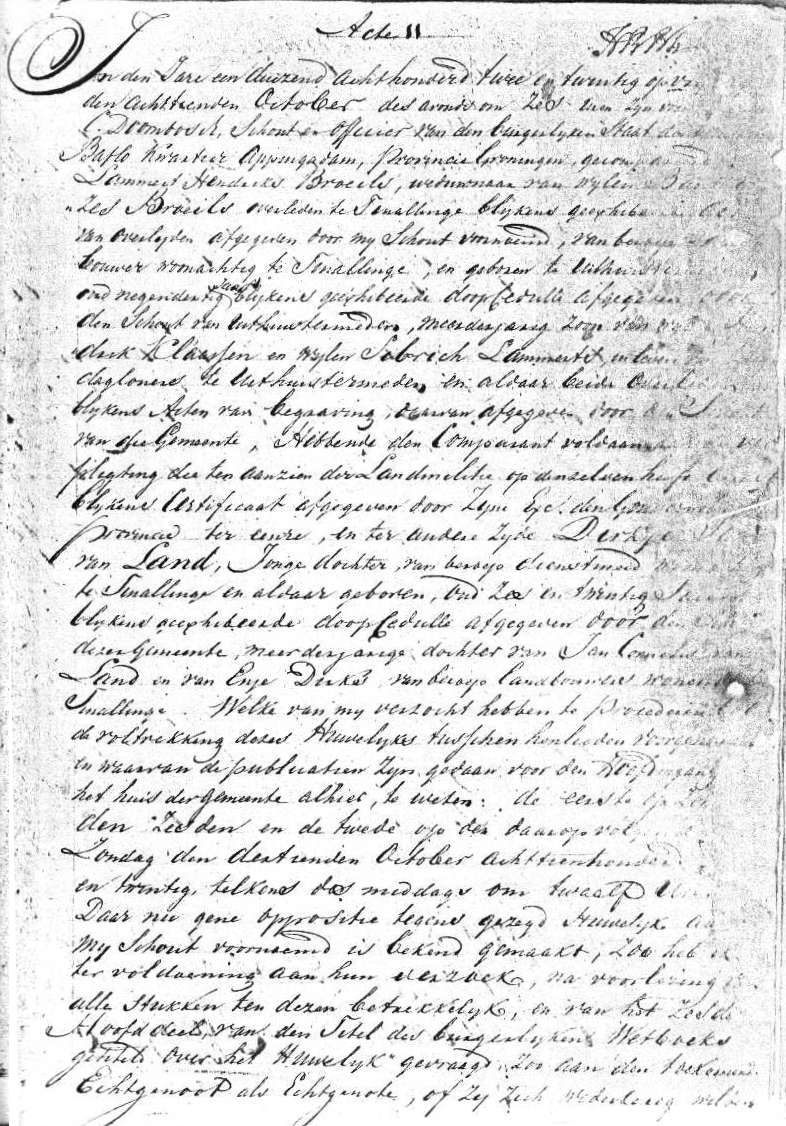 Acte 11
In den Jare een duizend achthonderd twee en twintig op
den achttienden October des avonds om zes uren zyn voor
C. Doornbosch, Schout en Officier van den burgerlyken Staat der
Baflo Kwartier Appingadam, provincie Groningen, gecompareerd
Lammert Hendriks Broeils, weduwnaar van wylen
Broeils overleden te Tinallinge blykens geexhibeerde
van overlyden afgegeven door my Schout voornoemd, van beroep
bouwer woonachtig te Tinallinge, en geboren te Uithuistermeden
oud negendertig Jaren blykens geexhibeerde doopCedulle afgegeven door
den Schout van Uithuistermeden, meerderjarig zoon van
drik Klaassen en wylen Sobrich Lammerts in leven
dagloners te Uithuistermeden en aldaar beide overleden
blykens Acten van begraving, daarvan afgegeven door den Schout
van die Gemeente, Hebbende den Comparant voldaan
pligting die ten aanzien der Landmilitie op denzelven heeft
blykens Certificaat afgegeven door Zyne Exc. den Gouverneur
provincie ter eenre, en ter andere zyde Derkje
van Land, Jonge dochter, van beroep dienstmeid
te Tinallinge en aldaar geboren, oud zes en twintig Jaren
blykens geexhibeerde doopCedulle afgegeven door den
dezer Gemeente, meerderjarige dochter van Jan Cornelis van
Land en van Enje Derks van beroep landbouwers wonende
Tinallinge. Welke van my verzocht hebben te procederen
de voltrekking dezes Huwelykes tusschen henlieden voorgenomen
en waarvan de publicatien zyn gedaan voor den hoofdingang
het huis der gemeente alhier, te weten: de eerste op
den zesden en de twede op den daaropvolgende
Zondag den dertienden October achttienhonderd
en twintig, telkens des middags om twaalf uren
Daar nu gene oppositie tegens gezegd Huwelyk aan
My Schout voornoemd is bekend gemaakt, Zoo heb ik
ter voldoening aan hun verzoek, na voorlezing van
alle stukken ten dezen betrekkelyk, en van het zesde
Hoofddeel, van den Titel des burgerlyken Wetboeks
getiteld over het Huwelyk gevraagd, Zoo aan den toekomende
Echtgenoot als Echtgenote, of Zy Zich wederkeerig wilden